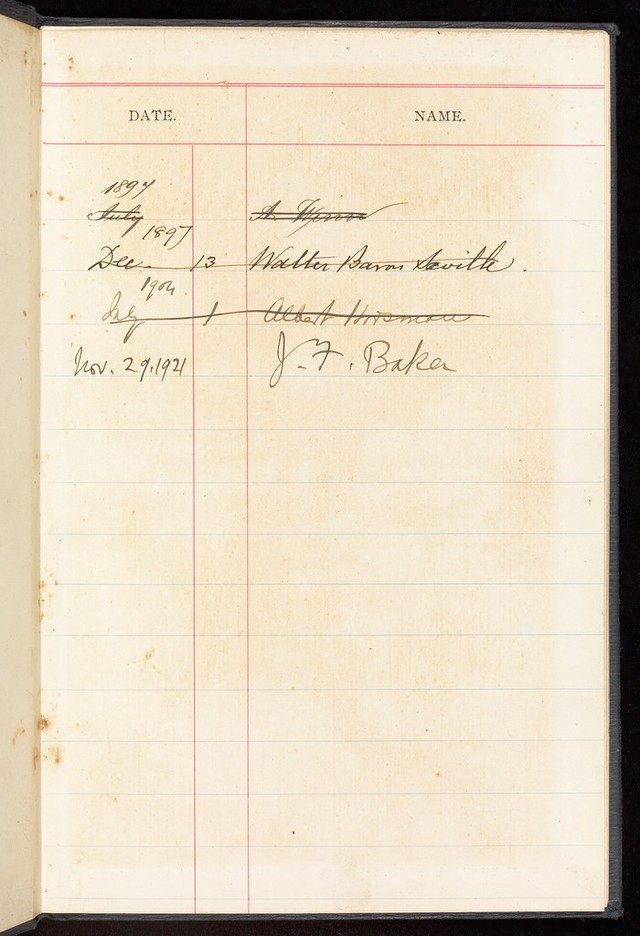 DATE. NAME.
1897
July A. Winn
1897
Dec. 13 Walter Baron Seville.
1904
July 1 Albert Horsman
Nov. 29. 1921 J. F. Baker